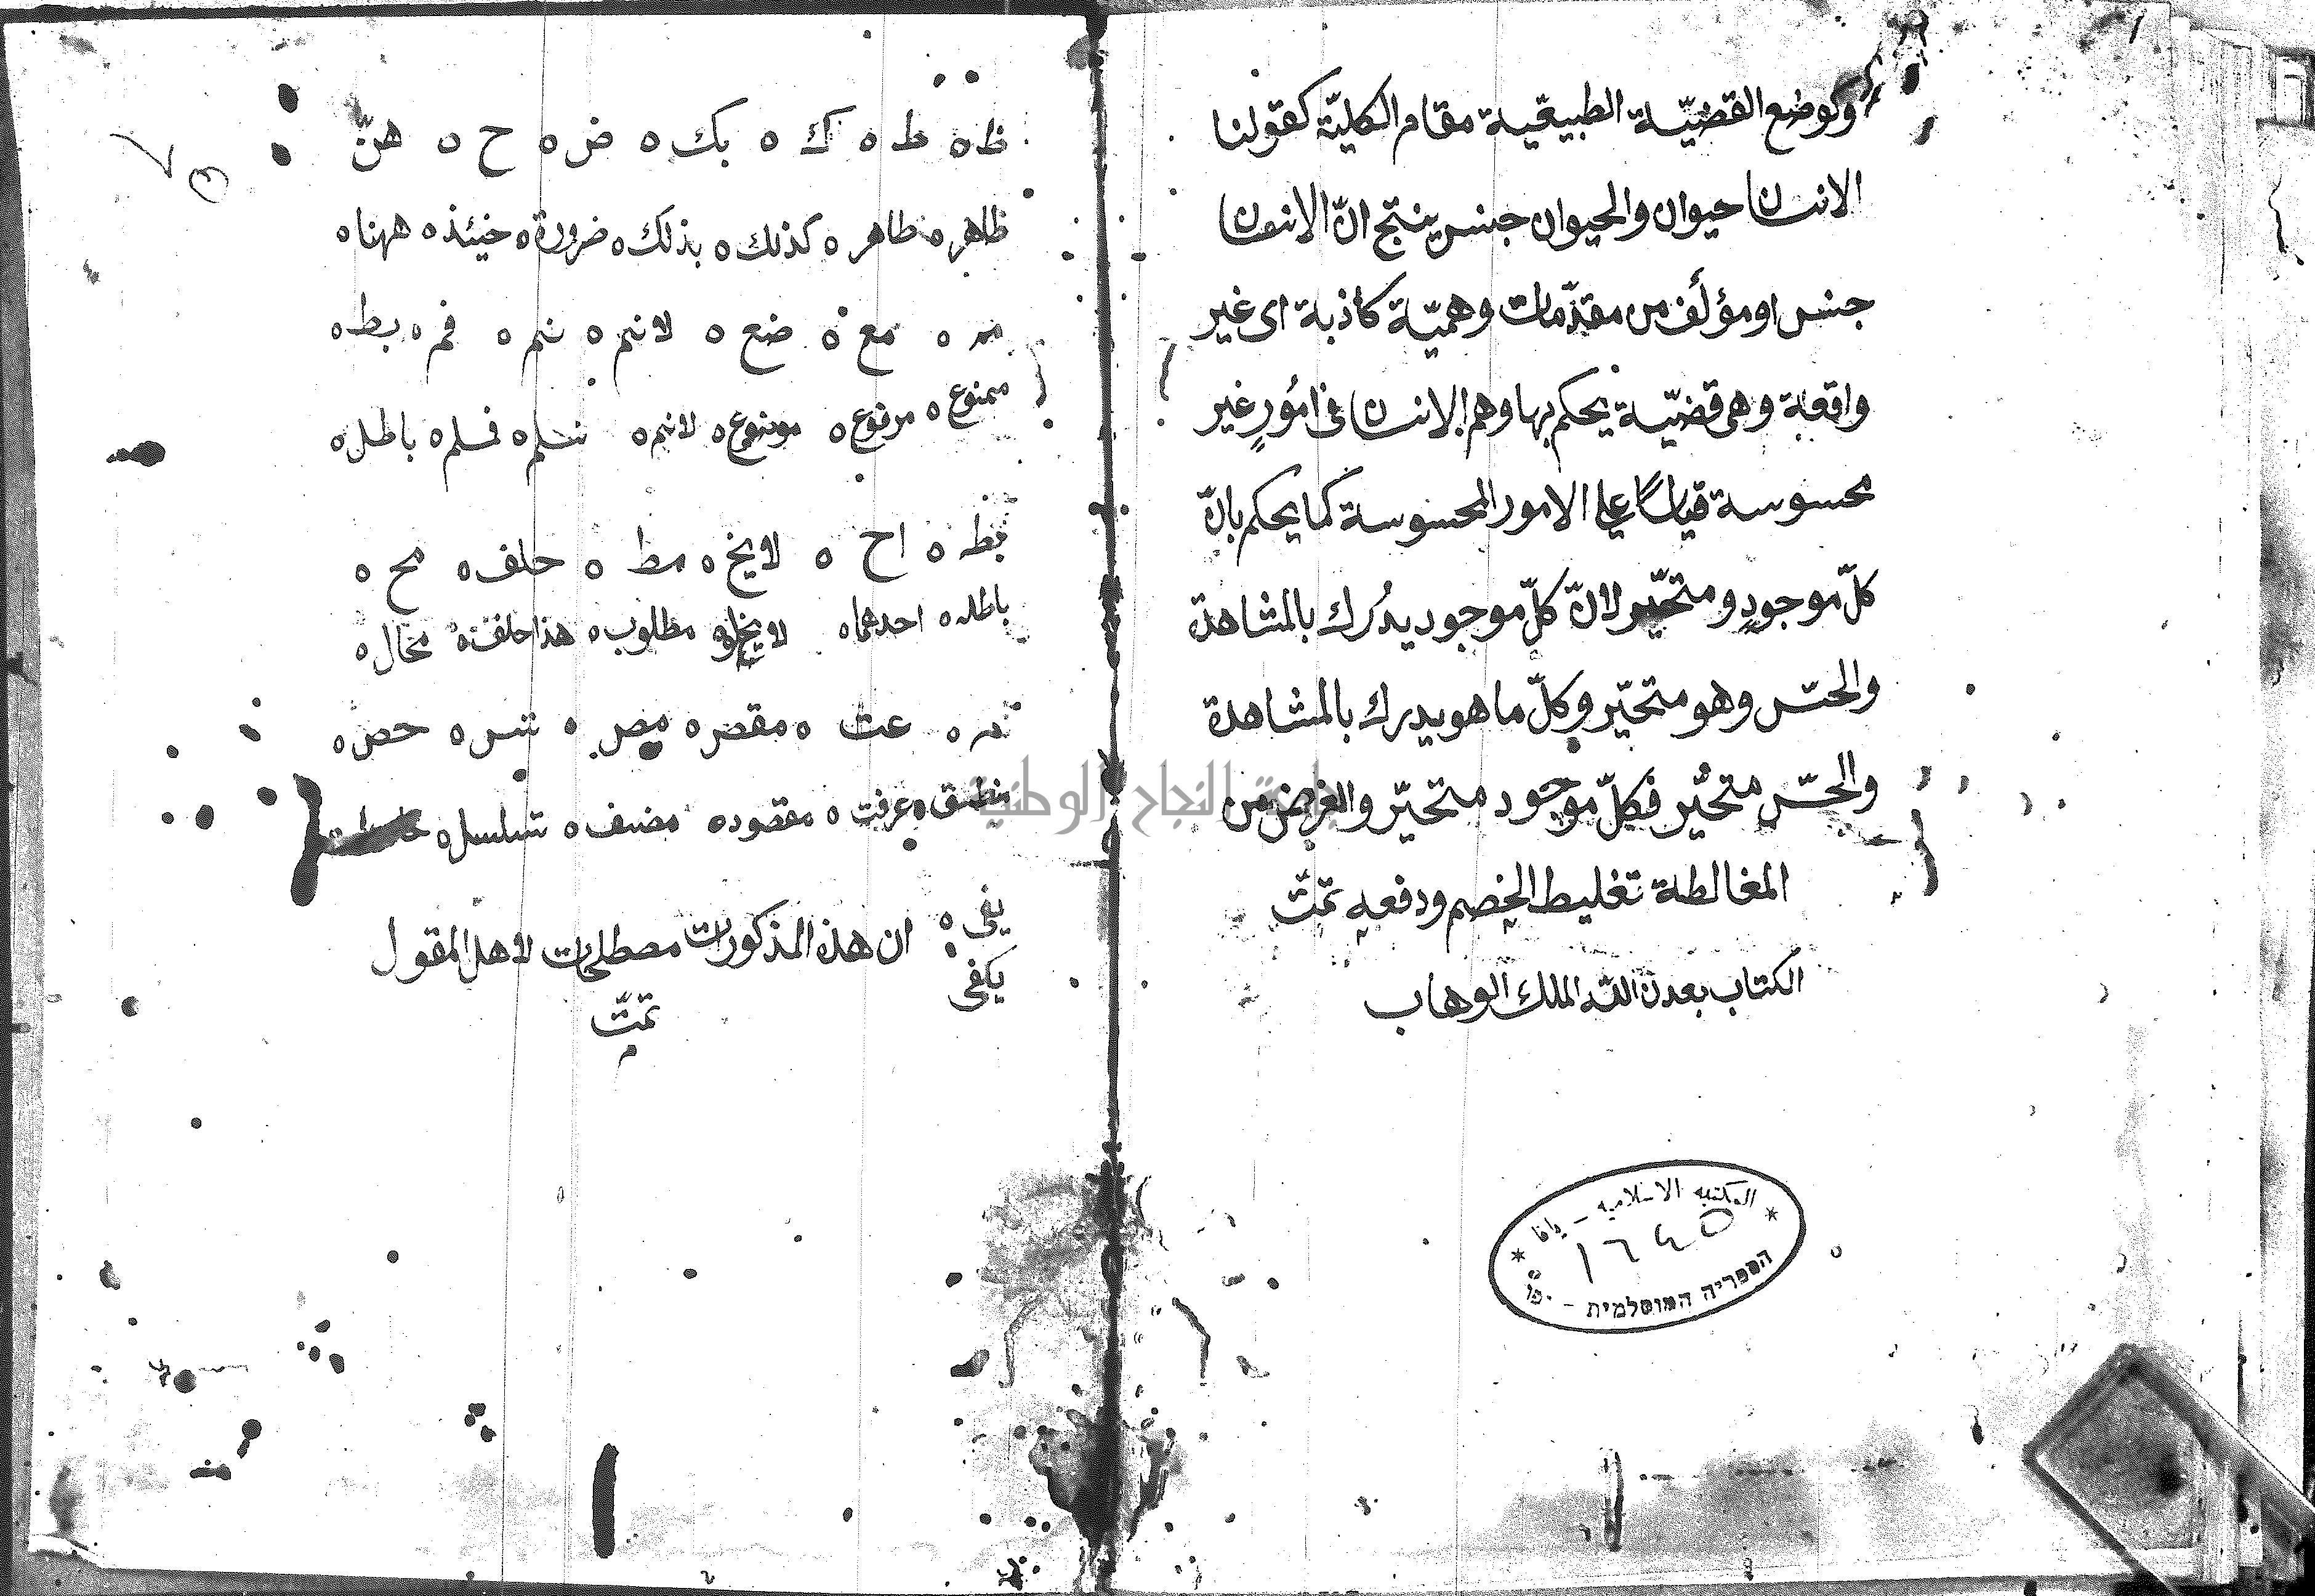 وكوضع القضيّة الطبيعيّة مقام الكليّة كقولنا
الانسان حيوان والحيوان جنس ينتج انّ الانسان
جنس او مؤلّف من مقدّمات وهميّة كاذبة اى غير
واقعة وهى قضيّة يحكم بها وهم الانسان فى امُورٍ غير
محسوسة قياسًا على الامور المحسوسة كما يحكم بانّ
كلّ موجودٍ ومتحيّر لانّ كلّ موجود يدُرك بالمشاهدة
والحسّ وهو متحيّر وكلّ ما هو يدرك بالمشاهدة
والحسّ متحيّر فكلّ موجود متحيّر والغرض من
المغالطة تغليط الخصم ودفعه تمّت
الكتاب بعون الله الملك الوهاب
المكتبه الاسلاميه - يافا
١٦٤٥
הספריה המוסלמית - יפו
ظ ه ط ه ك ه بك ه ض ه ح ه هنّ
ظاهر ه ظاهر ه كذلك ه بذلك ه ضرورة ه حينئذ ه ههنا ه
مم ه مع ه ضع ه لانم ه نم ه فم ه بط ه
ممنوع ه مرفوع ه موضوع ه لانم ه نسلم ه فسلم ه باطل ه
بط ه اح ه لايخ ه مط ه خلف ه مح ه
باطل ه احدهما ه لايخلو مطلوب ه هذا خلف ه محال ه
ه عت ه مقصر ه مص ه تس ه حص ه
ينطبق ه عرفت ه مقصود ه مصنف ه تسلسل ه
يفى ه ان هذه المذكورات مصطلحات لاهل المقول
يكفى
تمّت
جامعة النجاح الوطنية